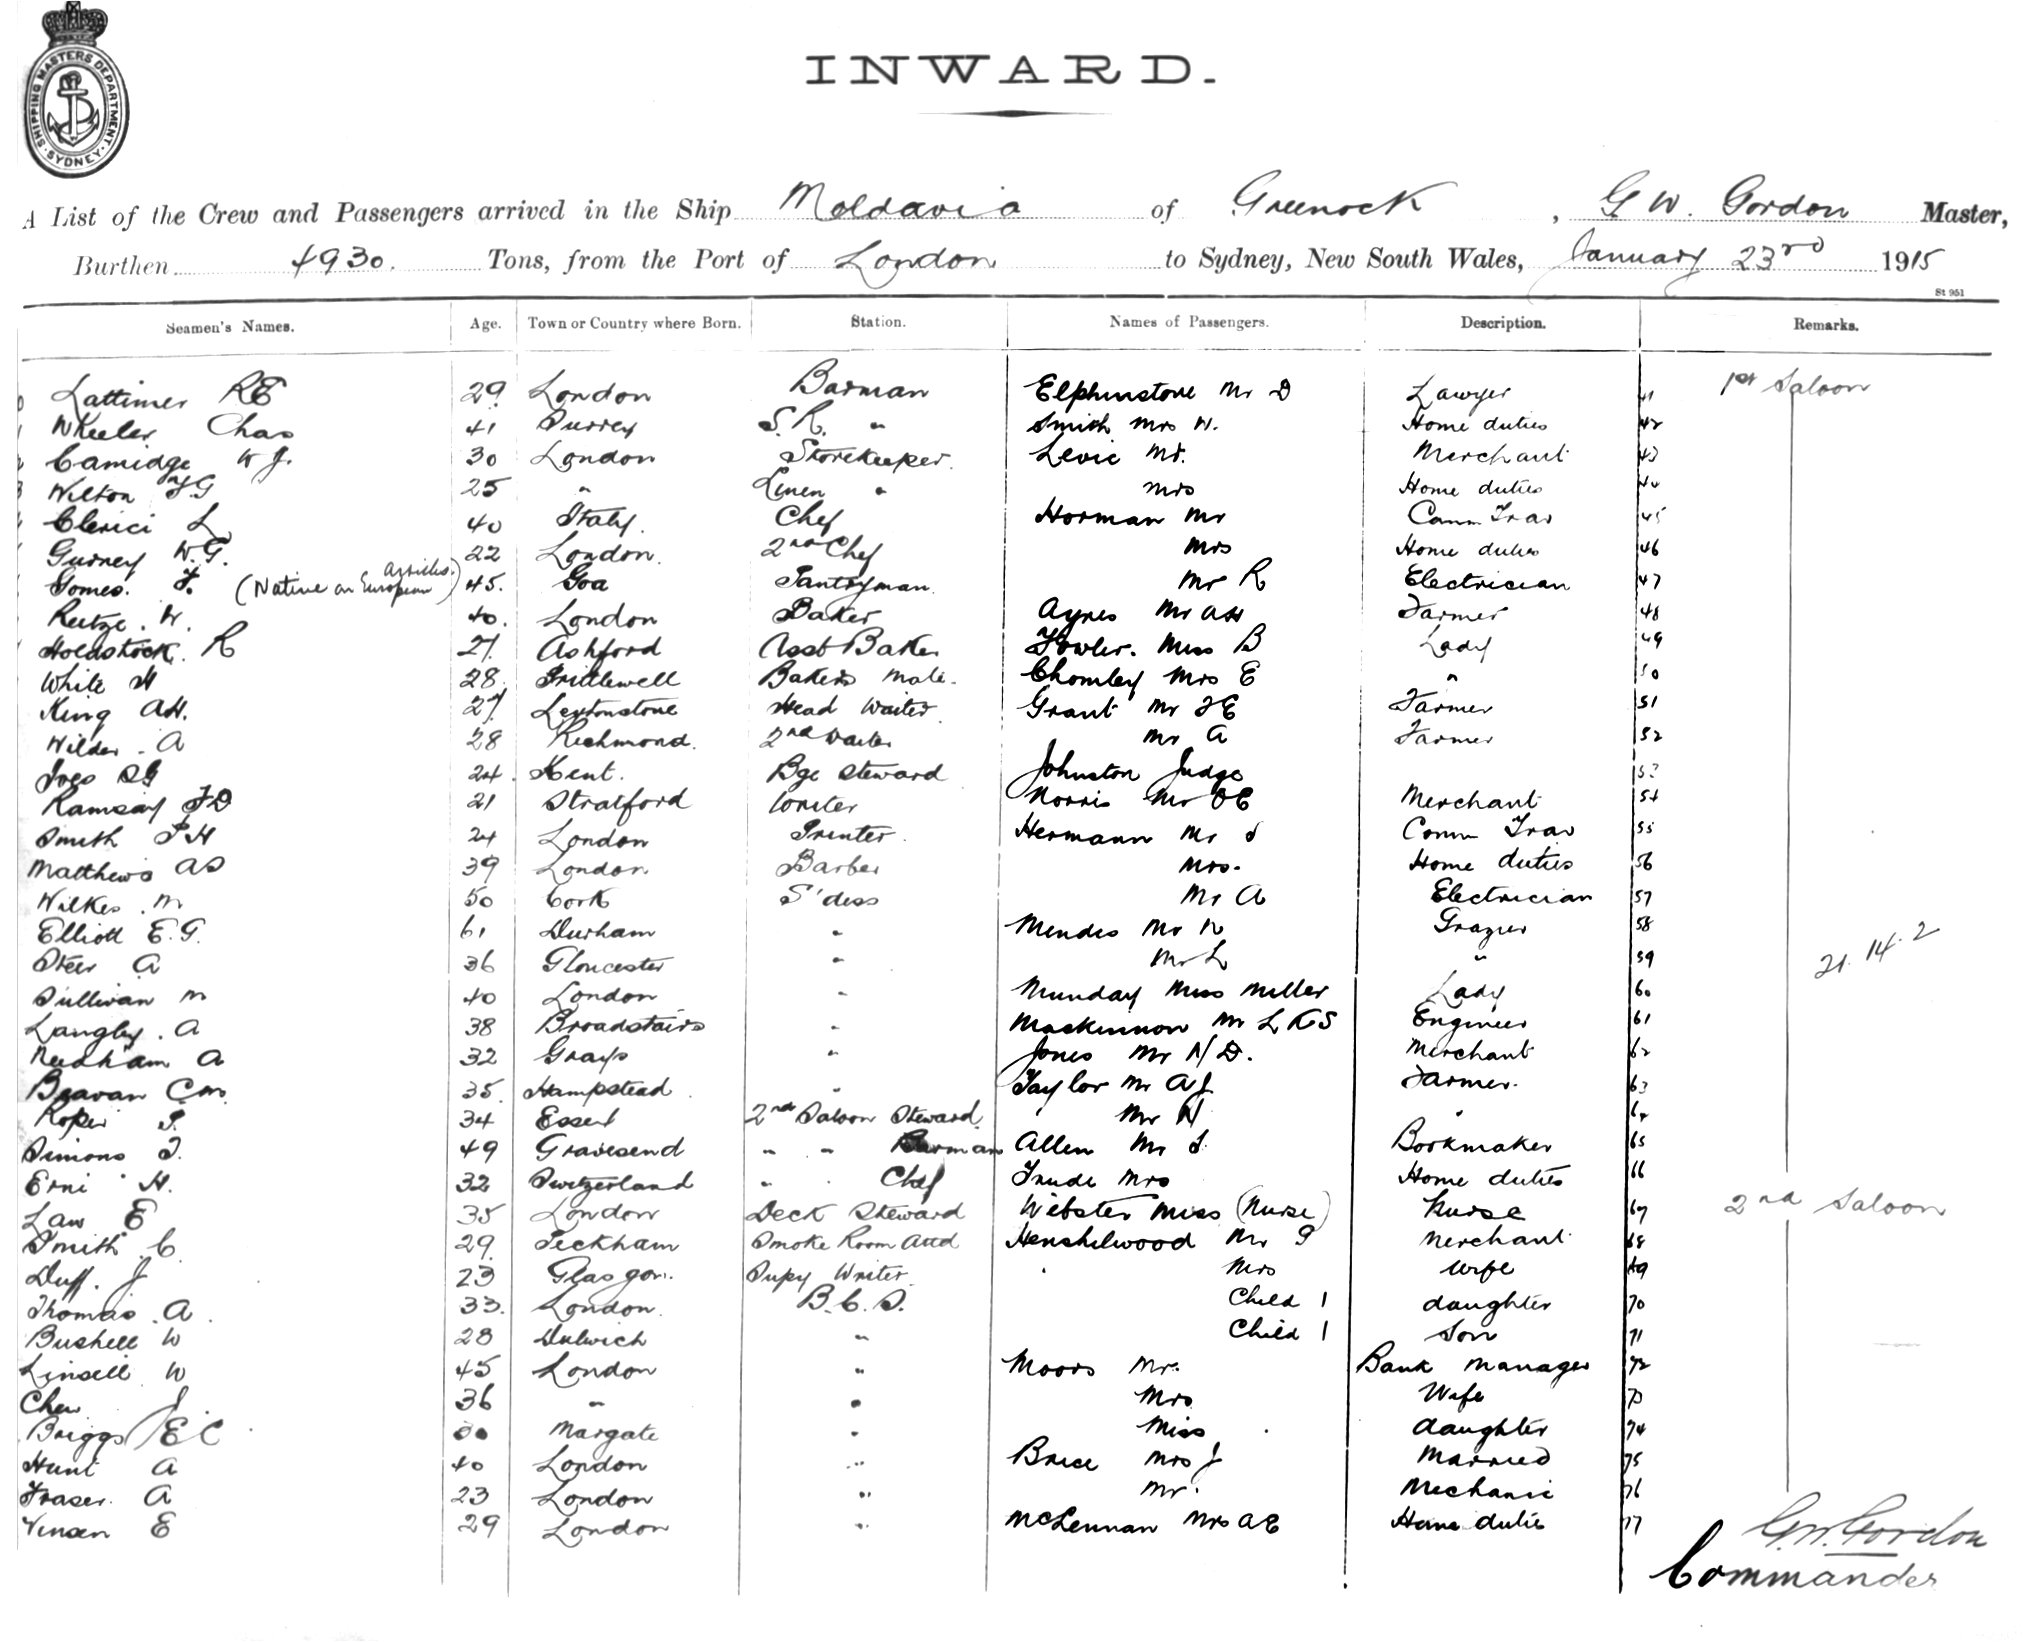 SHIPPING MASTERS DEPARTMENT. SYDNEY.
INWARD.
A List of the Crew and Passengers arrived in the Ship Moldavia of Greenock, G W. Gordon Master,
Burthen 4930. Tons, from the Port of London to Sydney, New South Wales, January 23rd 1915
St 951
Seamen's Names. Age. Town or Country where Born. Station. Names of Passengers. Description. Remarks.
Lattimer RE 29 London Barman Elphinstone Mr D Lawyer 41 1st Saloon
Wheeler Chas 41 Surrey S.R. " Smith Mrs H. Home duties 42
Camidge W J. 30 London Storekeeper. Levie Mr. Merchant 43
Wilton F G 25 " Linen " Mrs Home duties 44
Clerici L 40 Italy. Chef Horman Mr Comm Trav 45
Gurney W.G. 22 London. 2nd Chef Mrs Home duties 46
Gomes. F. (Native on European Articles.) 45. Goa Pantryman. Mr R Electrician 47
Reitze. W. 40. London Baker Ayres Mr AH Farmer 48
Holdstock. R 27. Ashford Asst Baker Fowler. Miss B Lady 49
White H 28. Prittlewell Bakers Mate. Chomley Mrs E " 50
King AH. 27. Leytonstone Head Waiter Grant Mr J E Farmer 51
Wilder. A 28 Richmond. 2nd Waiter Mr A Farmer 52
Ives 24. Kent. Bge Steward Johnston Judge 53
Ramsay F D 21 Stratford Writer Norris Mr O E Merchant 54
Smith P H 24 London Printer. Hermann Mr S Comm Trav 55
Matthews AS 39 London. Barber Mrs. Home duties 56
Wilkes. M 50 Cork S'dess Mr A Electrician 57
Elliott E.G. 61 Durham " Mendes Mr R Grazier 58
Steer A 36 Gloucester " Mr L " 59 21. 14. 2
Sullivan M 40 London " Munday Miss Miller Lady 60
Langley. A 38 Broadstairs " Mackinnon Mr L K S Engineer 61
Needham A 32 Grays " Jones Mr H D. Merchant 62
Beavan C M. 35. Hampstead " Taylor Mr A J Farmer. 63
Roper S. 34 Essex 2nd Saloon Steward Mr H " 64
Simons T. 49 Gravesend " " Barman Allen Mr S. Bookmaker 65
Erni H. 32 Switzerland " " Chef Trude Mrs Home duties 66
Law E 35 London Deck Steward Webster Miss (Nurse) Nurse 67 2nd Saloon
Smith C. 29. Peckham Smoke Room Attd Henshelwood Mr P Merchant 68
Duff. J 23 Glasgow. Supy Writer " Mrs Wife 69
Thomas. A. 33. London. B.C.S. Child 1 daughter 70
Bushell W 28 Dulwich " Child 1 Son 71
Linsell W 45 London " Moors Mr. Bank Manager 72
Chew J. 36 " " Mrs Wife 73
Briggs E C Margate " Miss daughter 74
Hunt A 40 London " Brice Mrs J Married 75
Fraser. A 23 London " Mr. Mechanic 76
Vinsen E 29 London " McLennan Mrs A E Home duties 77
G.W. Gordon
Commander